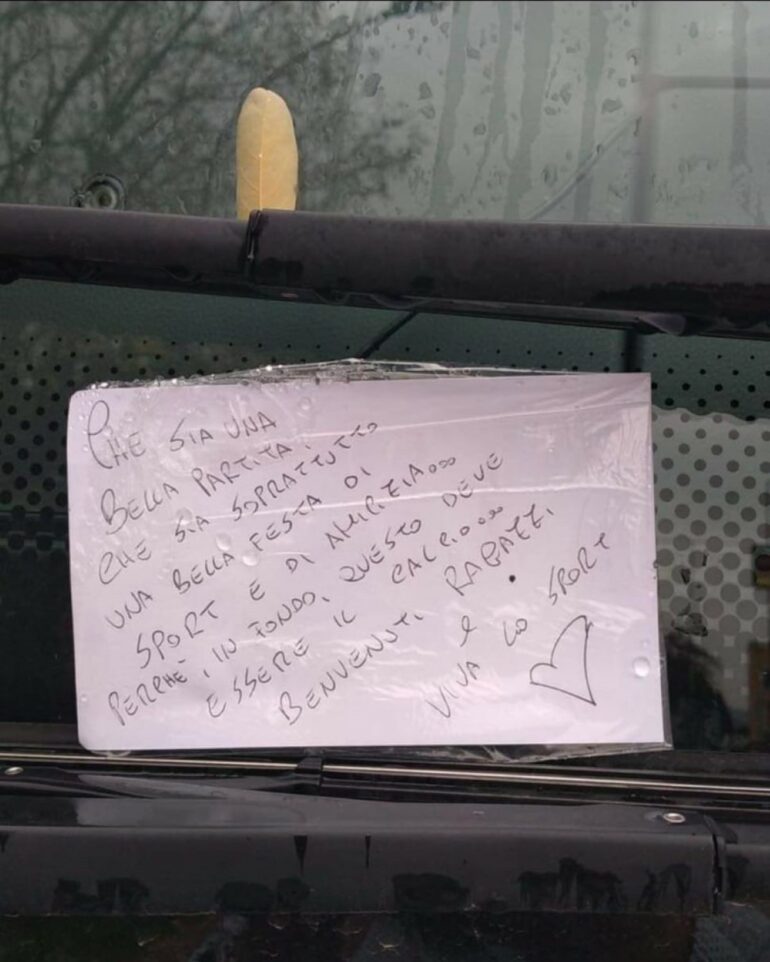 CHE SIA UNA
BELLA PARTITA,
CHE SIA SOPRATTUTTO
UNA BELLA FESTA DI
SPORT E DI AMICIZIA...
PERCHÈ, IN FONDO, QUESTO DEVE
ESSERE IL CALCIO...
BENVENUTI RAGAZZI
e
VIVA LO SPORT